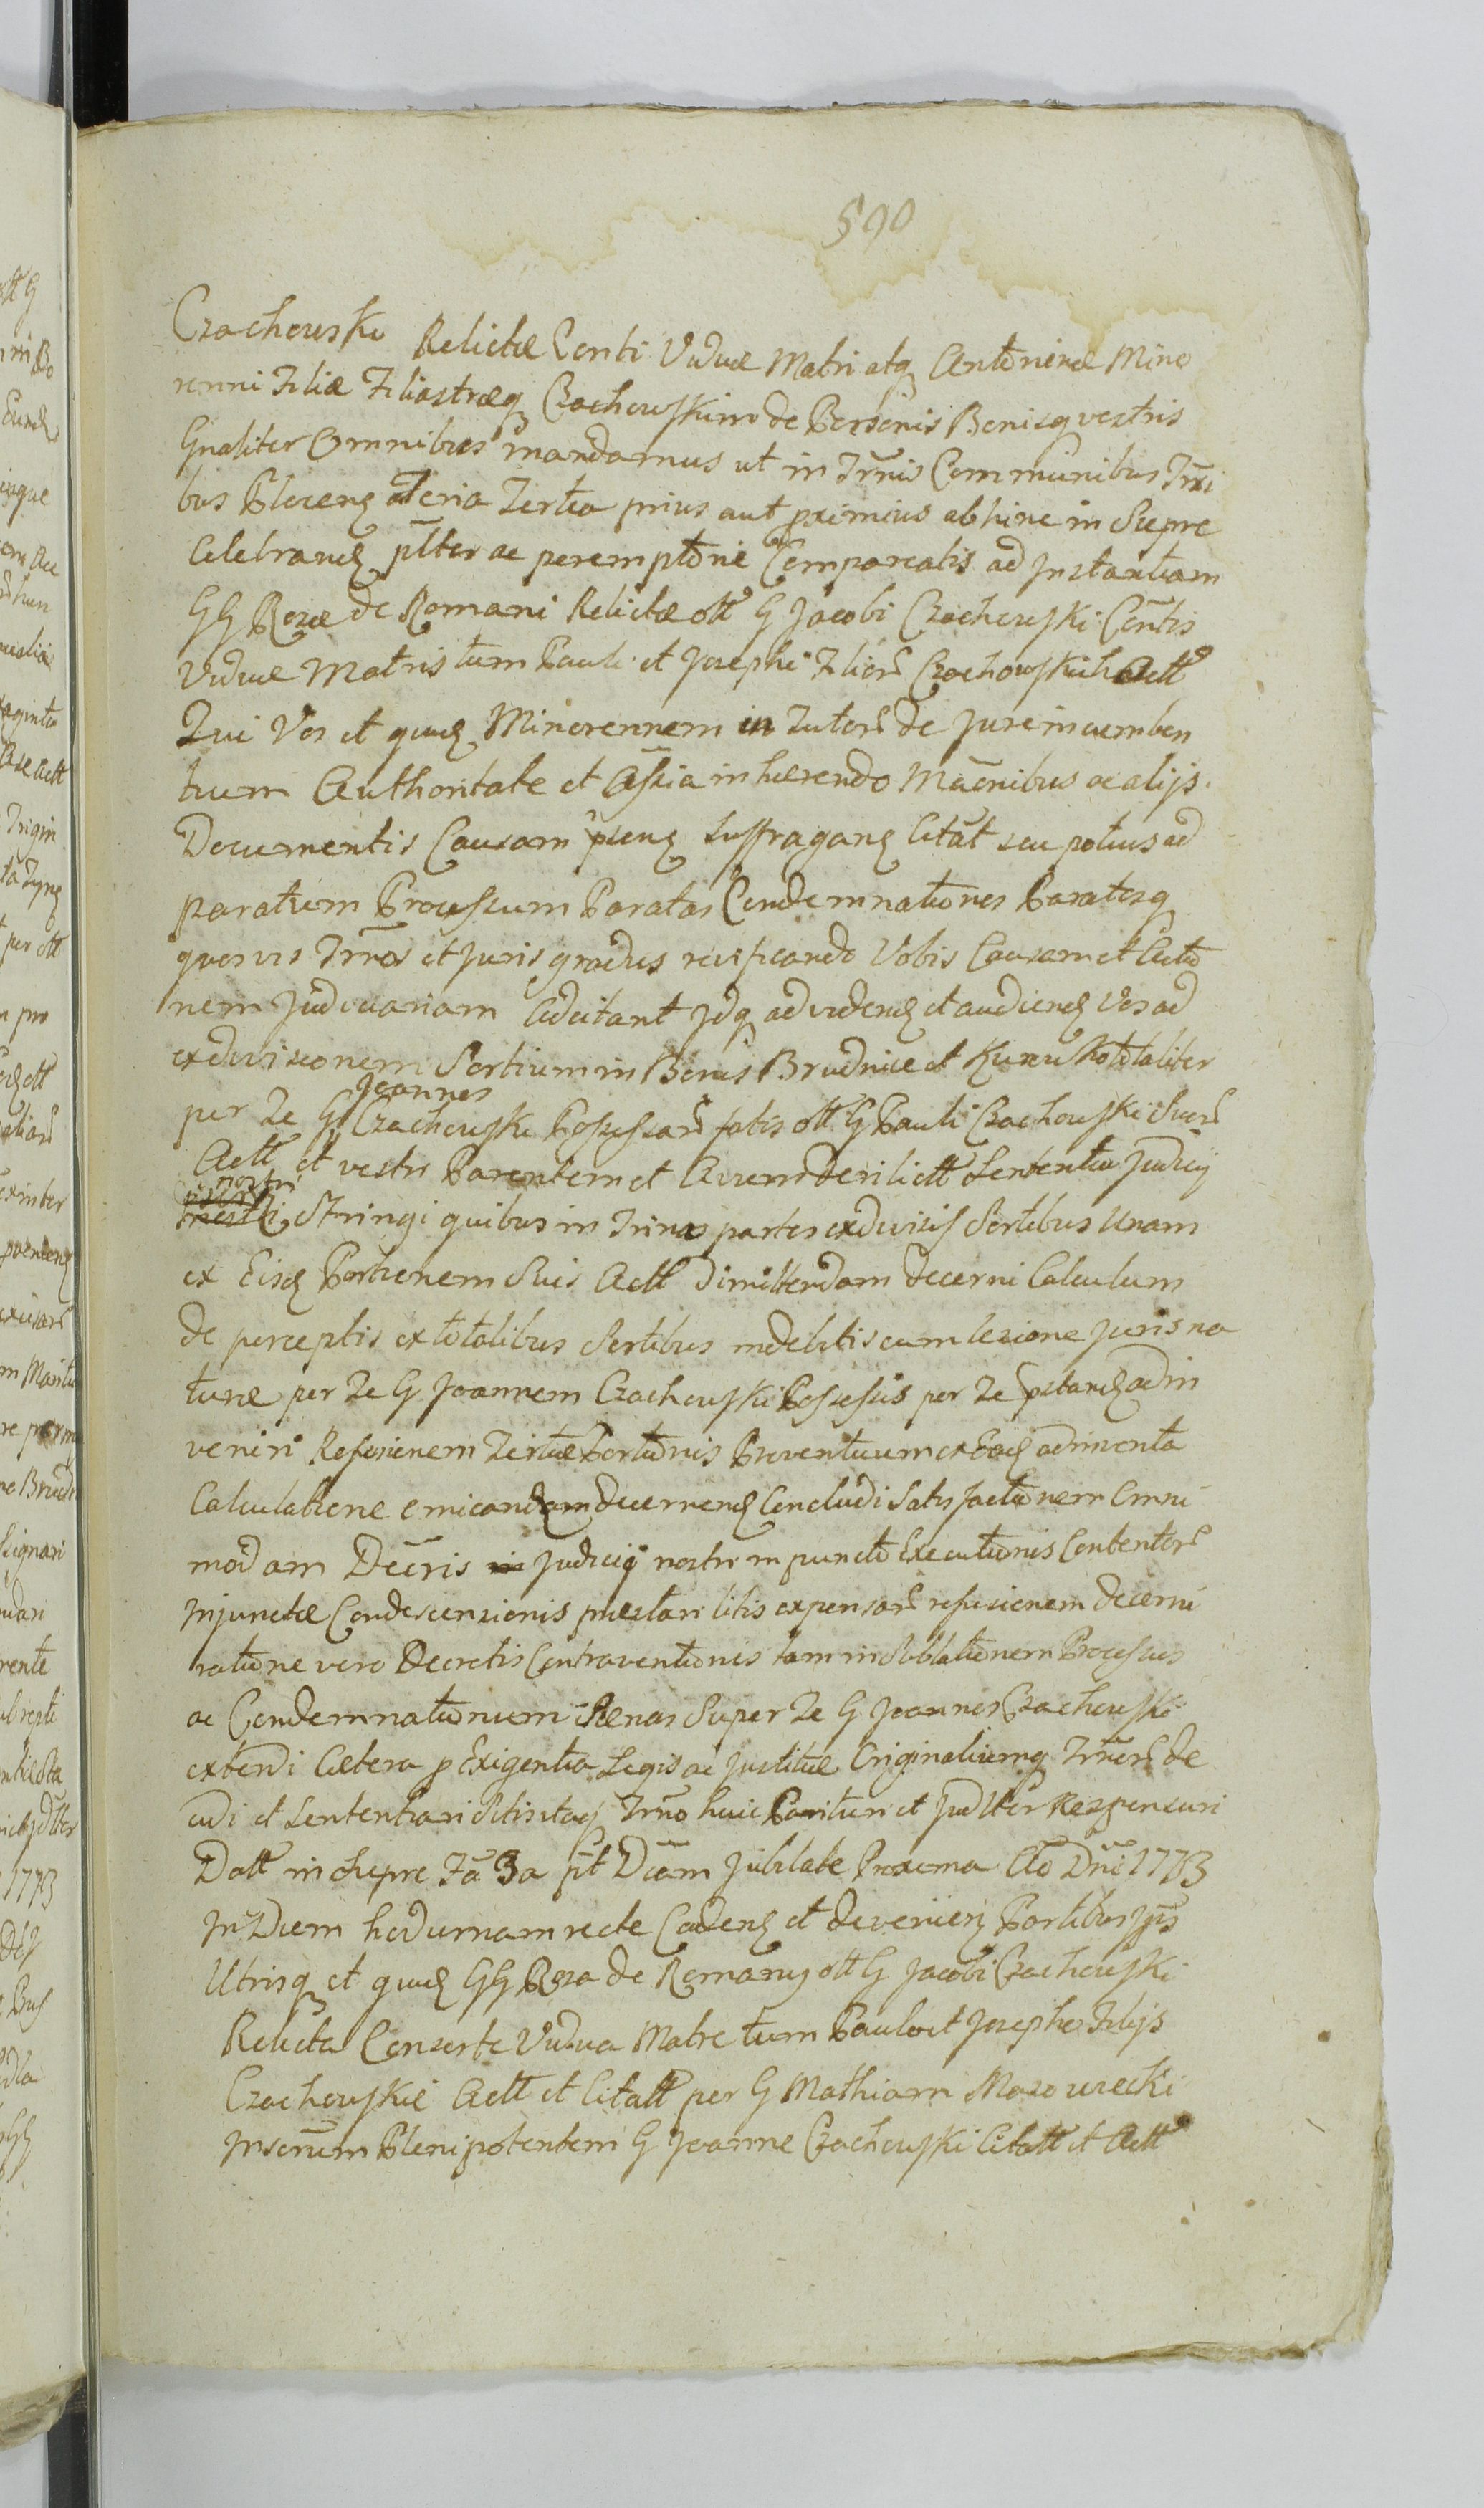 590
Czachowski Relictæ Conti Viduæ Matri atq Antoninæ Mino
renni Filiæ Filiastræq Czachowskim de Personis Bonisq vestris
Gnaliter Omnibus mandamus ut in Trnis Communibus Trri
bus Plocens Feria Tertia prius aut proximius abhinc in Siepre
Celebrand pltter ac peremptorie Compareatis ad Instantiam
GG Rozæ de Romani Relictæ olt G Jacobi Czachowski Contis
Viduæ Matris tum Pauli et Josephi Filior Czachowskich Actt
Qui Vos et quid Minorennem in Tutor de Jure incumben
tium Authoritate et Assia inhærendo Mãonibus ac alijs
Documentis Causam psens Suffragans Citat seu potius ad
paratum Processum Paratas Condemnationes Paratosq
quosvis Trnos et Juris gradus reificando Vobis Causam et Actio
nem Judiciariam Adcitant Idq ad vidend et audiend Vos ad
exdivisionem Sortium in Bonis Brudnice et totaliter
Joannes
per Te G Czachowski Possessar fatis olt G Pauli Czachowski Suor
Actt et vestri Parentem et Avum derilictt Sententia Judicij
nostri
Stringi quibus in Trinas partes exdivisis Sortibus Unam
ex Eisd Portionem Suis Actt dimittendam decerni Calculum
de perceptis ex totalibus Sortibus indebitis cum lesione Juris na
turæ per Te G Joannem Czachowski Possessis per Te pstand adin
veniri Refusionem Tertiæ Portionis Proventuum ex Ead adinventa
Calculatione emicandam decernend Concludi Satisfactionem Omni
modam Decris Judicij nostri in puncto Executionis Contentor
Injunctæ Condescensionis præstari litis expensar refusionem decerni
ratione vero Decretis Contraventionis tam in Sublationem Processus
ac Condemnationum Pænas Super Te G Joannes Czachowski
extendi Cætera p Exigentia Legis ac Justitiæ Originaliumq Trnor de
cidi et Sententiari Sitis itaq Trno huic Parituri et Judlter Responsuri
Datt in Siepre Fa 3a pt Dcam Jubilate Proxima Ao Dni 1773
In Diem hodiernam recte Cadens et deveniens Partibus Ipis
Utrisq et quid GG Roza de Romany olt G Jacobi Czachowski
Relicta Consorte Vidua Matre tum Paulo et Josepho Filijs
Czachowskie Actt et Citatt per G Mathiam Mazowiecki
Inserum Plenipotentem G Joanne Czachowski Citatt et Actt